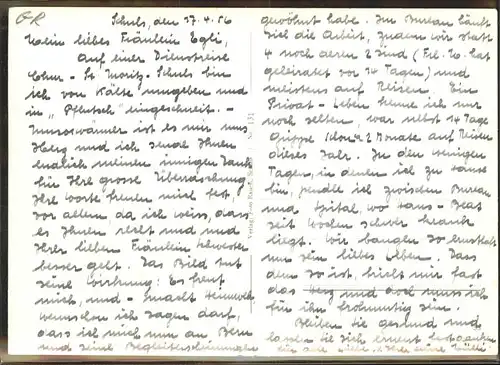 GR
Schuls, den 27.4.56
Mein liebes Fräulein Egli,
Auf einer Dienstreise
Chur - St. Moritz - Schuls bin
ich von Kälte umgeben und
in "Pflutsch" eingeschneit. -
Umso wärmer ist es mir ums
Herz und ich sende Ihnen
endlich meinen innigen Dank
für Ihre grosse Überraschung.
Ihre Worte freuen mich sehr,
vor allem da ich weiss, dass
es Ihnen recht und
Ihrer lieben Fräulein Schwester
besser geht. Das Bild tut
seine Wirkung: Es freut
mich, und - macht Heimweh,
wenn ich sagen darf,
dass ich mich nun an Bern
und seine Begleiterscheinungen
gewöhnt habe. Im Bureau häuft
sich die Arbeit, zudem wir statt
4 noch deren 2 sind (Frl. W. hat
geheiratet vor 14 Tagen) und
meistens auf Reisen. Ein
Privat-Leben kenne ich nur
noch selten, war nebst 14 Tage
Grippe schon 2 Monate auf Reisen
dieses Jahr. In den wenigen
Tagen, in denen ich zu Hause
bin, pendle ich zwischen Bureau
und Spital, wo Hans-Beat
seit Wochen schwer krank
liegt. Wir bangen so ernstlich
um sein liebes Leben. Dass
dem so ist, bricht mir fast
das Herz und doch muss ich
für ihn frohmütig sein.
Bleiben Sie gesund und
lassen Sie sich erneut
für Ihre Liebe